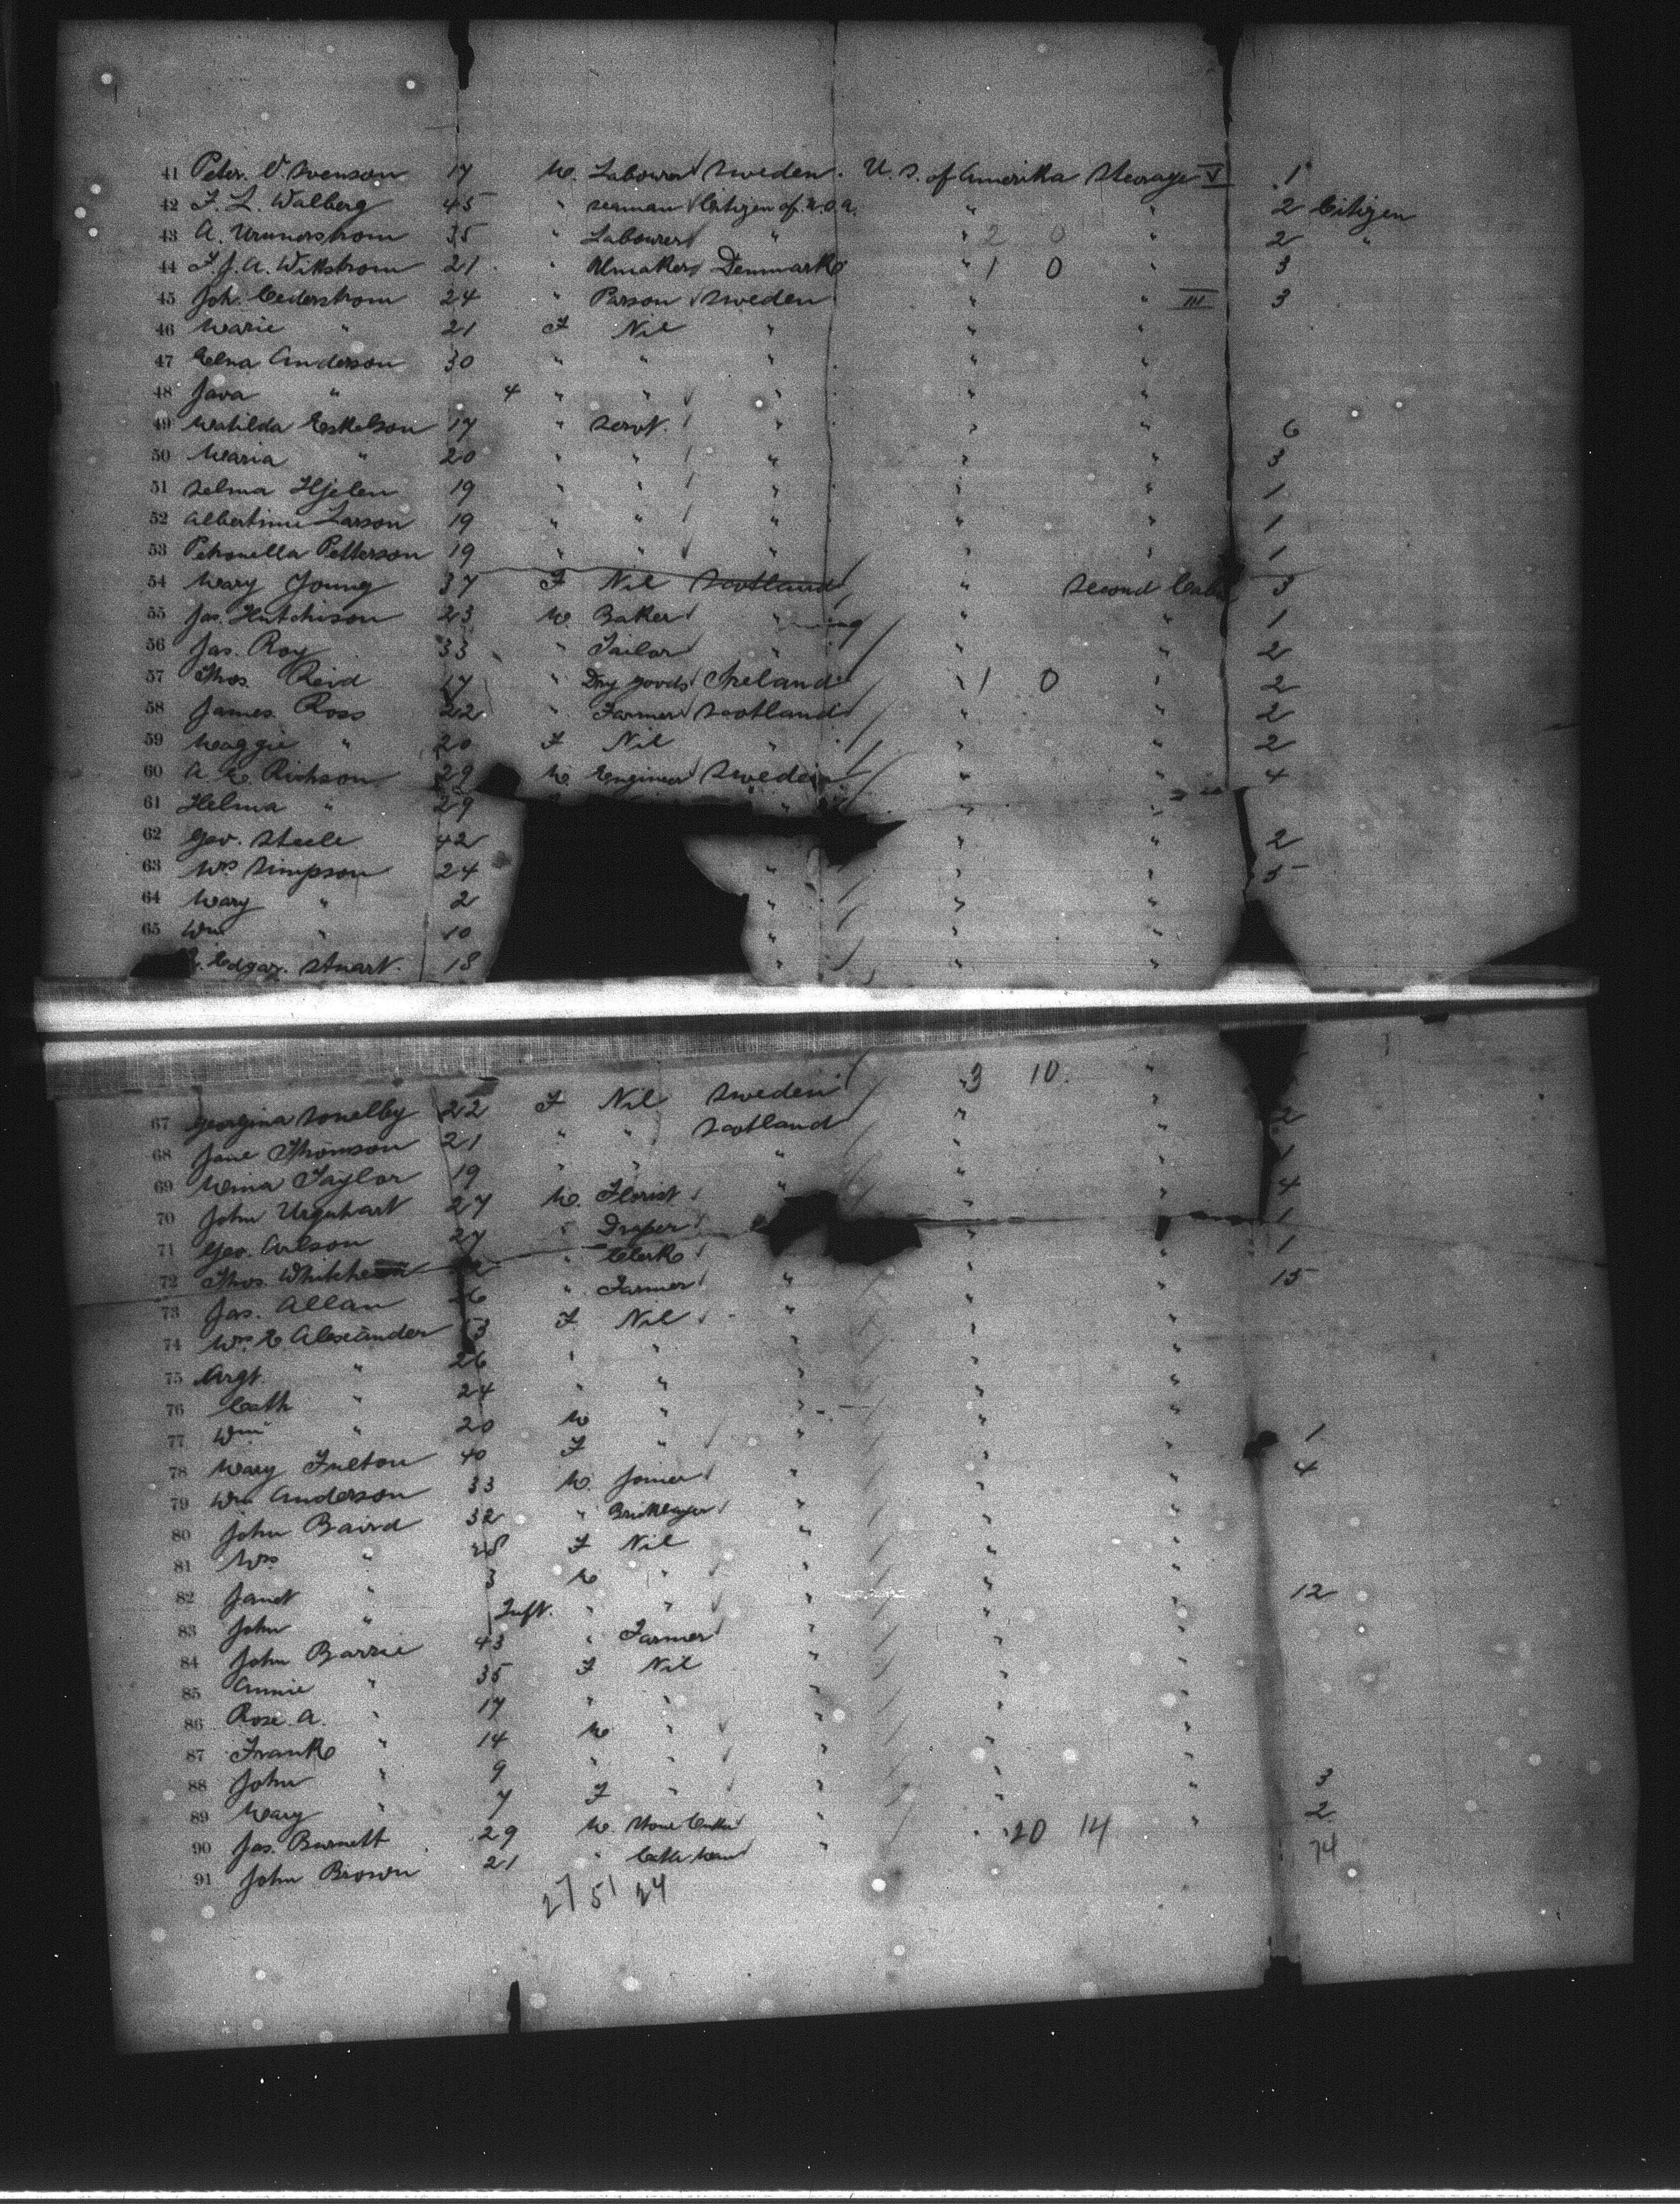 41 Peter. O. Svenson 17 M. Labourer Sweden. U. S. of Amerika Steerage V 1
42 F. L. Walberg 45 " Seaman Citizen of U.S.A. " " 2 Citizen
43 A. 35 " Labourer " " 2 0 " 2 "
44 F. J. A. Wikstrom 21 " Denmark " 1 0 " 3
45 Joh. Cederstrom 24 " Parson Sweden " " III 3
46 Marie " 21 F Nil " " "
47 Elna Anderson 30 " " " " "
48 " 4 " " " " "
49 Matilda Eskelson 17 " Servt. " " " 6
50 Maria " 20 " " " " " 3
51 Selma Hjelen 19 " " " " " 1
52 Albertine Larson 19 " " " " " 1
53 Petronella Petterson 19 " " " " " 1
54 Mary Young 37 F Nil Scotland " Second Cabin 3
55 Jas. Hutchison 23 M. Baker " " " 1
56 Jas. Roy 33 " Tailor " " " 2
57 Thos. Reid 17 " Dry goods Ireland " 1 0 " 2
58 James Ross 22 " Farmer Scotland " " 2
59 Maggie " 20 F Nil " " " 2
60 A. E. Richson 29 M Engineer Sweden " " 4
61 Helma " 29 " " "
62 Geo. Steele 42 " " 2
63 Mrs Simpson 24 " " " 5
64 Mary " 2 " " "
65 Wm " 10 " " "
Edgar. Stuart. 18 " " "
3 10. "
67 Georgina 22 F Nil Sweden " " 2
68 Jane Thomson 21 " " Scotland " " 1
69 Mina Taylor 19 " " " " " 4
70 John Urquhart 27 M. Florist " " " 1
71 Geo. Carlson 27 " Draper " " 1
72 Thos. " Clerk " " 15
73 Jas. Allan 26 " Farmer " " "
74 Mrs. E. Alexander 3 F. Nil " " "
75 Argt. " 26 " " " " "
76 Cath " 24 " " " " "
77 Wm " 20 M " " " " 1
78 Mary Fulton 40 F " " " " 4
79 Wm Anderson 33 M. Joiner " " "
80 John Baird 32 " Bricklayer " " "
81 Mrs " 28 F Nil " " "
82 Janet " 3 M " " " 12
83 John " Inft. " " " " "
84 John Barrie 43 " Farmer " " "
85 Annie " 35 F Nil " " "
86 Rose A. " 17 " " " " "
87 Frank " 14 M " " " "
88 John " 9 " " " " " 3
89 Mary " 7 F " " " " 2
90 Jas. Burnett 29 M. Stone Cutter " 20 14 " 74
91 John Brown 21 " Cattle man "
27 51 24